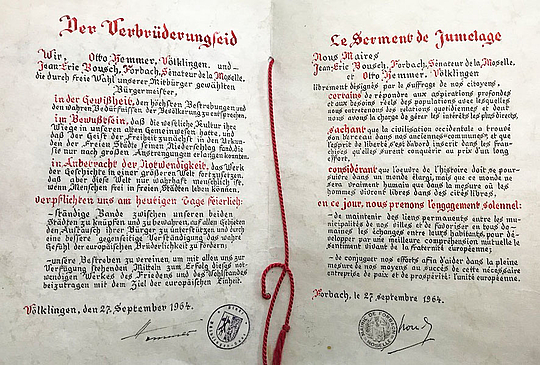 Der Verbrüderungseid
Wir, Otto Hemmer, Völklingen, und –
Jean-Eric Bousch, Forbach, Sénateur de la Moselle,
die durch freie Wahl unserer Mitbürger gewählten
Bürgermeister,
in der Gewißheit, den höchsten Bestrebungen und
den wahren Bedürfnissen der Bevölkerung zu entsprechen,
im Bewußtsein, daß die westliche Kultur ihre
Wiege in unseren alten Gemeinwesen hatte, und
daß der Geist der Freiheit zunächst in den Urkun-
den der Freien Städte seinen Niederschlag fand, die
sie nur nach großen Anstrengungen erlangen konnten.
in Anbetracht der Notwendigkeit, das Werk
der Geschichte in einer größeren Welt fortzusetzen,
daß aber diese Welt nur wahrhaft menschlich ist,
wenn Menschen frei in freien Städten leben können.
verpflichten uns am heutigen Tage feierlich:
–ständige Bande zwischen unseren beiden
Städten zu knüpfen und zu bewahren, auf allen Gebieten
den Austausch ihrer Bürger zu unterstützen und durch
eine bessere gegenseitige Verständigung das wahre
Gefühl der europäischen Brüderlichkeit zu fördern.
–unsere Bestreben zu vereinen, um mit allen uns zur
Verfügung stehenden Mitteln zum Erfolg dieses not-
wendigen Werkes des Friedens und des Wohlstandes
beizutragen mit dem Ziel der europäischen Einheit.
Völklingen, den 27. September 1964.
Le Serment de Jumelage
Nous Maires
Jean-Eric Bousch, Forbach, Sénateur de la Moselle,
et Otto Hemmer, Völklingen
librement désignés par le suffrage de nos citoyens,
certains de répondre aux aspirations profondes
et aux besoins réels des populations avec lesquelles
nous entretenons des relations quotidiennes et dont
nous avons la charge de gérer les intérêts les plus directs,
sachant que la civilisation occidentale a trouvé
son berceau dans nos anciennes communes, et que
l'esprit de liberté s'est d'abord inscrit dans les fran-
chises qu'elles surent conquérir au prix d'un long
effort,
considérant que l'oeuvre de l'histoire doit se pour-
suivre dans un monde élargi, mais que ce monde ne
sera vraiment humain que dans la mesure où les
hommes vivront libres dans des cités libres,
en ce jour, nous prenons l'engagement solennel:
– de maintenir des liens permanents entre les mu-
nicipalités de nos villes et de favoriser en tous do-
maines les échanges entre leurs habitants, pour dé-
velopper par une meilleure compréhension mutuelle le
sentiment vivant de la fraternité européenne;
– de conjuguer nos efforts afin d'aider dans la pleine
mesure de nos moyens au succès de cette nécessaire
entreprise de paix et de prospérité: l'unité européenne.
Forbach, le 27. septembre 1964.